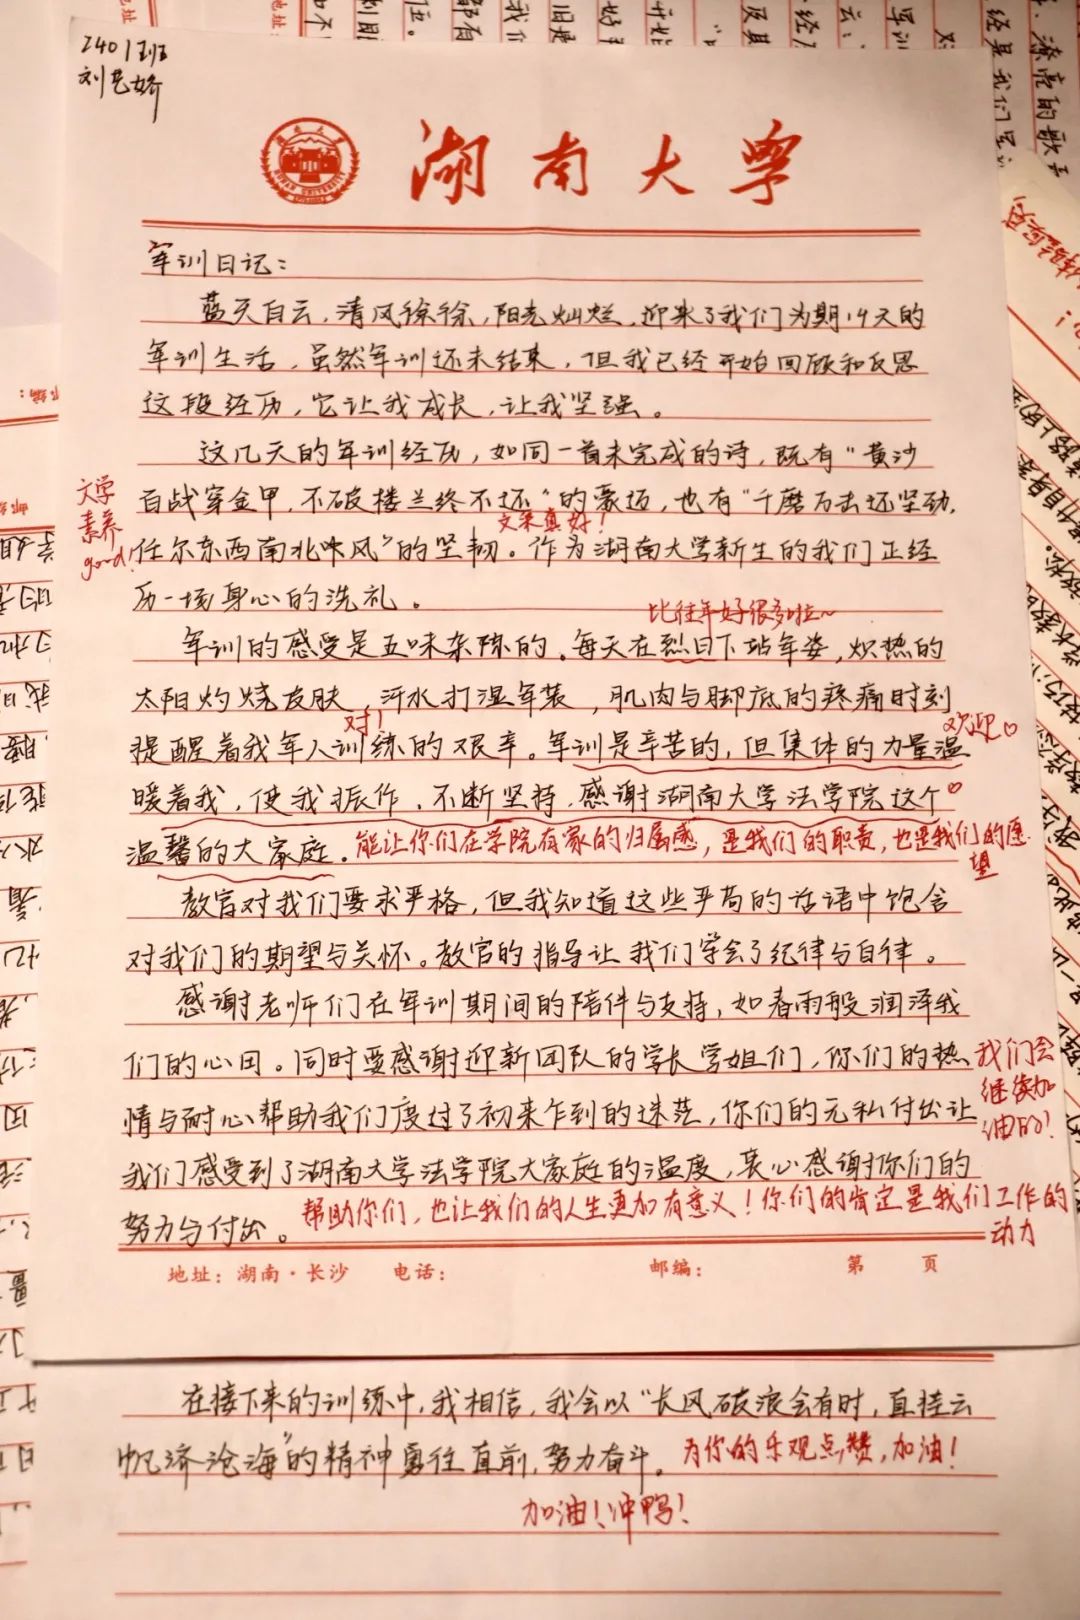 2401班
刘艺娇
湖南大学
HUNAN UNIVERSITY
军训日记：
蓝天白云，清风徐徐，阳光灿烂，迎来了我们为期14天的
军训生活，虽然军训还未结束，但我已经开始回顾和反思
这段经历，它让我成长，让我坚强。
这几天的军训经历，如同一首未完成的诗，既有“黄沙
百战穿金甲，不破楼兰终不还”的豪迈，也有“千磨万击还坚劲，
文学
素养
good!
文采真好！
任尔东西南北风”的坚韧。作为湖南大学新生的我们正经
历一场身心的洗礼。
比往年好很多啦~
军训的感受是五味杂陈的。每天在烈日下站军姿，炽热的
太阳灼烧皮肤，汗水打湿军装，肌肉与脚底的疼痛时刻
对！
欢迎♡
提醒着我军人训练的艰辛。军训是辛苦的，但集体的力量温
暖着我，使我振作，不断坚持，感谢湖南大学法学院这个♡
温馨的大家庭。能让你们在学院有家的归属感，是我们的职责，也是我们的愿
望
教官对我们要求严格，但我知道这些严苛的话语中饱含
对我们的期望与关怀。教官的指导让我们学会了纪律与自律。
感谢老师们在军训期间的陪伴与支持，如春雨般润泽我
们的心田。同时要感谢迎新团队的学长学姐们，你们的热
情与耐心帮助我们度过了初来乍到的迷茫，你们的无私付出让
我们会
继续加
油的！
我们感受到了湖南大学法学院大家庭的温度，衷心感谢你们的
努力与付出。
帮助你们，也让我们的人生更加有意义！你们的肯定是我们工作的
动力
地址：湖南·长沙 电话： 邮编： 第 页
在接下来的训练中，我相信，我会以“长风破浪会有时，直挂云
帆济沧海”的精神勇往直前，努力奋斗。为你的乐观点赞，加油！
加油！冲鸭！